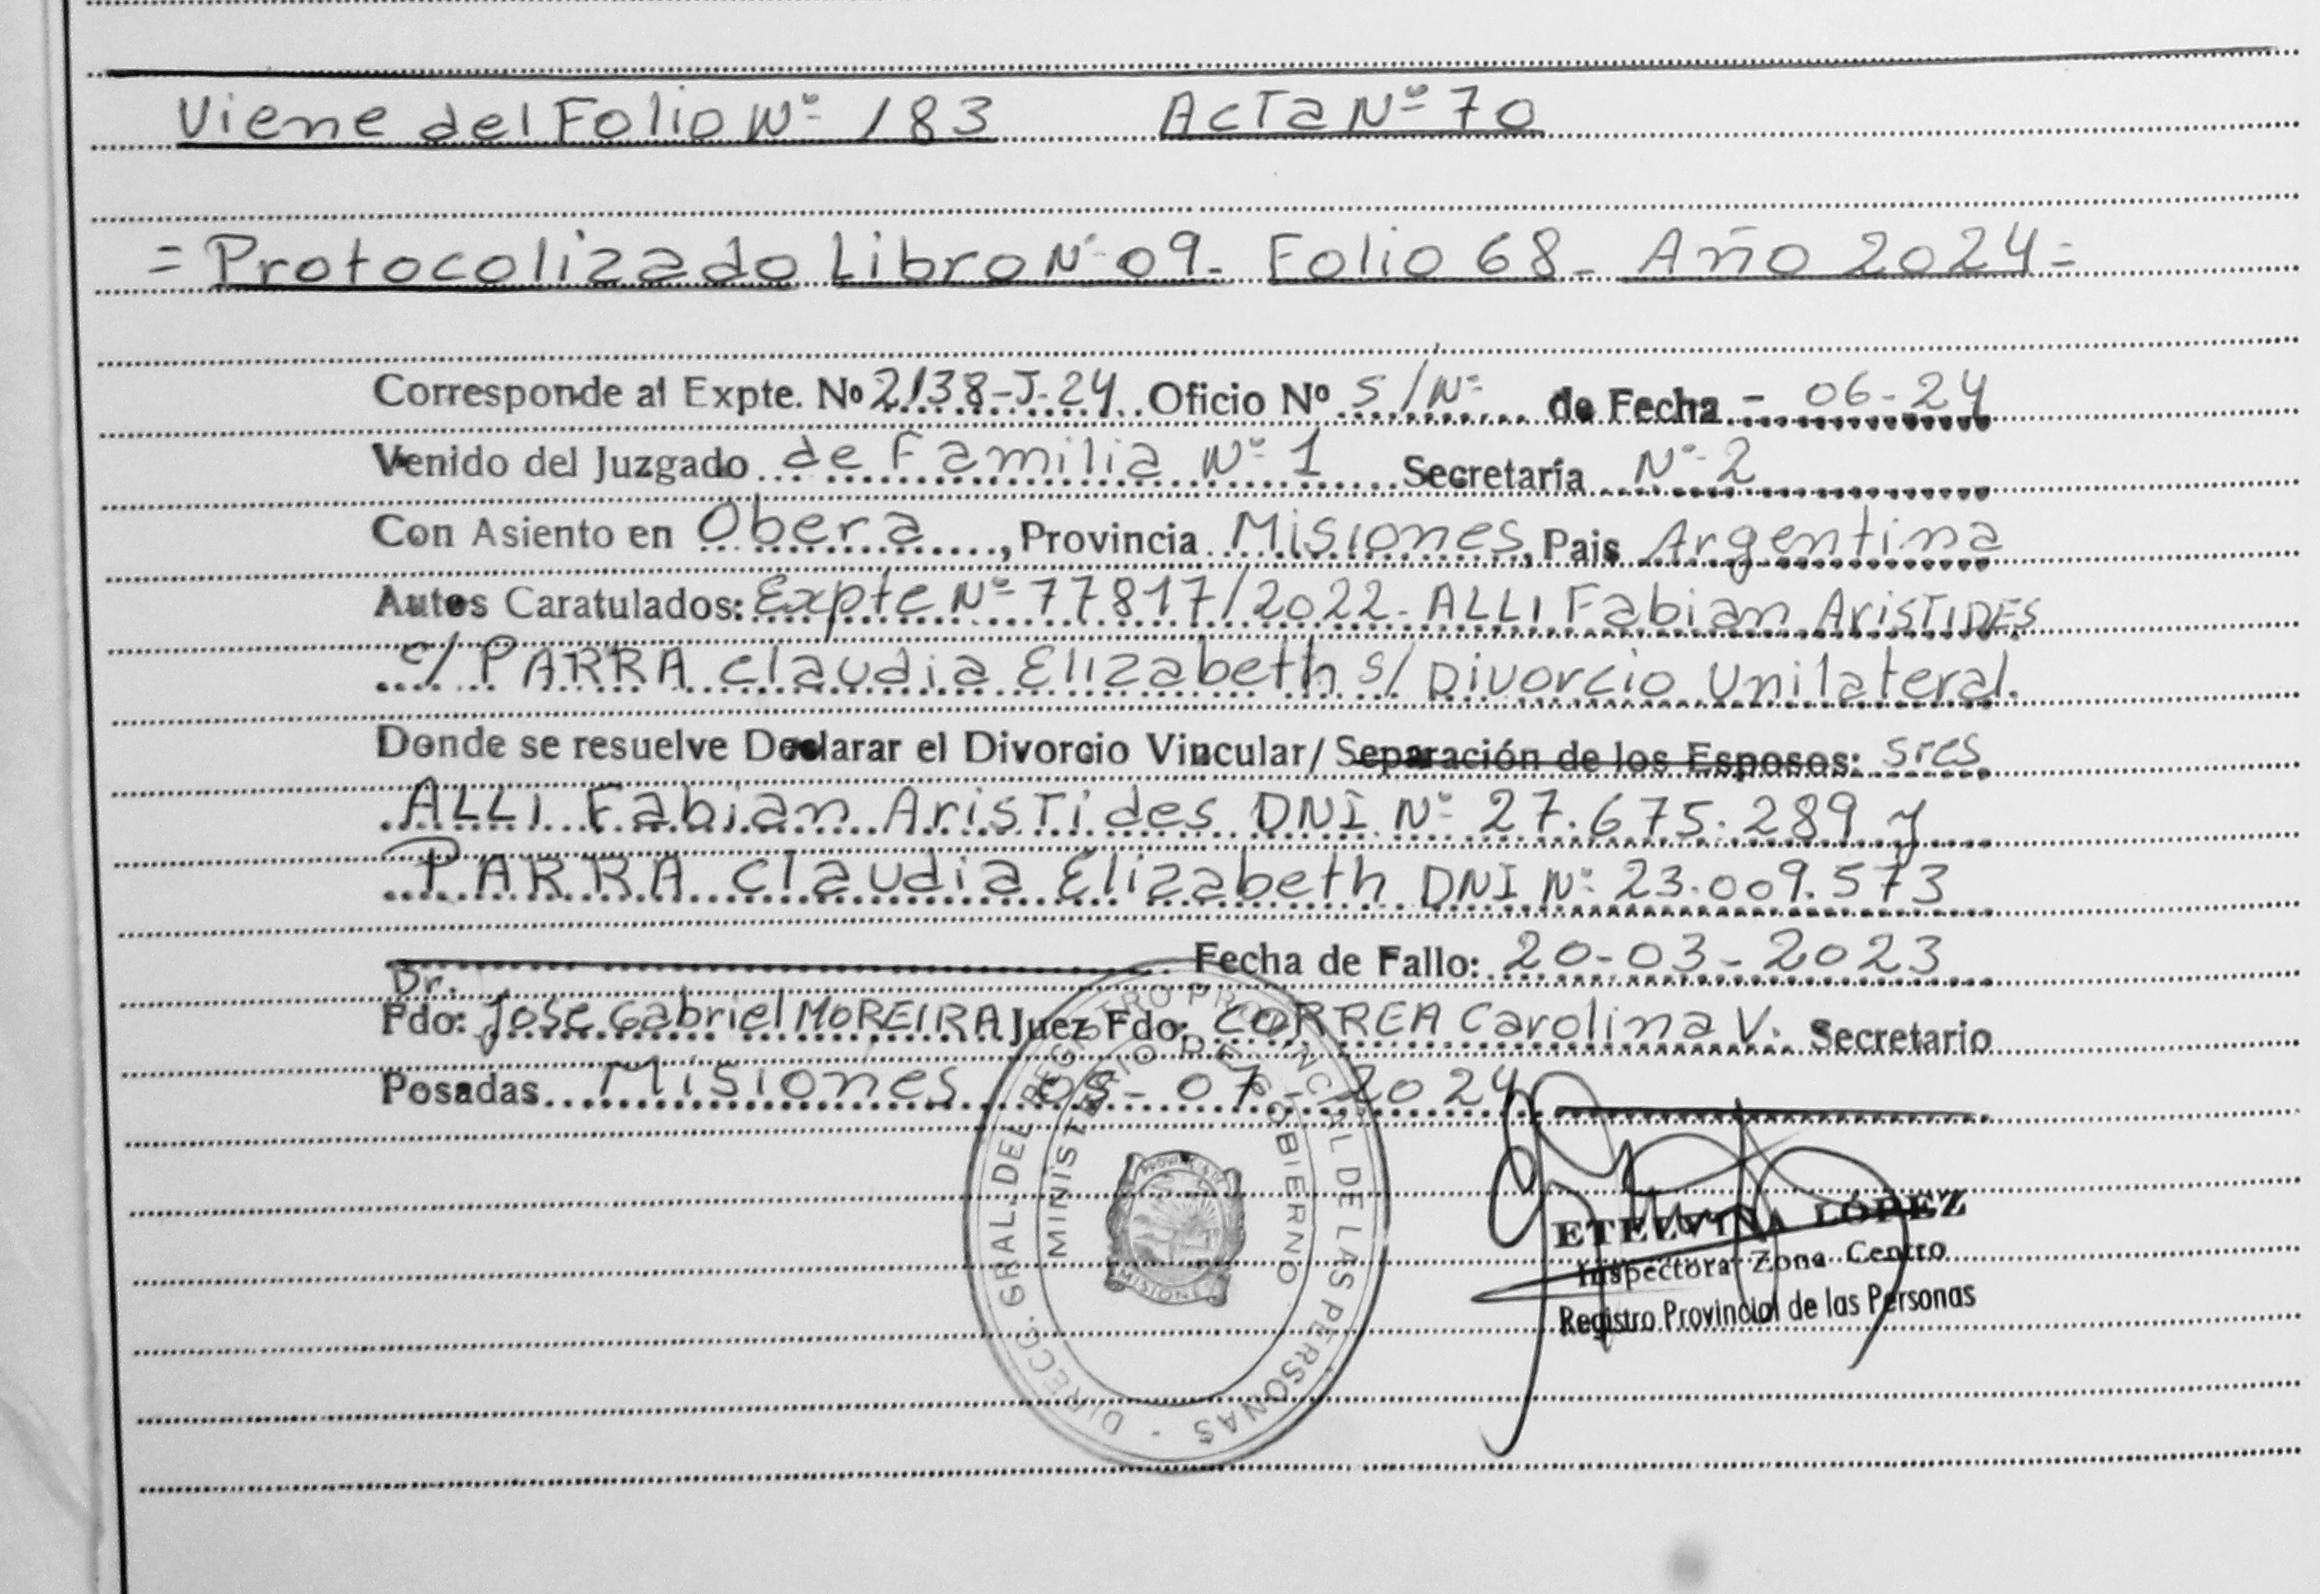 Viene del Folio Nº 183 Acta Nº 70
= Protocolizado Libro Nº 09- Folio 68- Año 2024=
Corresponde al Expte. Nº 2138-J-24 Oficio Nº S/Nº de Fecha - 06-24
Venido del Juzgado de Familia Nº 1 Secretaría Nº 2
Con Asiento en Obera, Provincia Misiones, Pais Argentina
Autos Caratulados: Expte Nº 77817/2022- ALLI Fabian ARISTIDES
c/ PARRA Claudia Elizabeth s/ Divorcio Unilateral.
Donde se resuelve Declarar el Divorcio Vincular/ Separación de los Esposos: sres
ALLI Fabian Aristides DNI Nº 27.675.289 y
PARRA Claudia Elizabeth DNI Nº 23.009.573
Fecha de Fallo: 20-03-2023
Dr.
Fdo: Jose Gabriel MOREIRA Juez Fdo: CORREA Carolina V. Secretario
Posadas Misiones 05-07-2024
DIRECC. GRAL. DEL REGISTRO PROVINCIAL DE LAS PERSONAS
MINISTERIO DE GOBIERNO
PROVINCIA DE
MISIONES
ETELVINA LÓPEZ
Inspectora Zona Centro
Registro Provincial de las Personas